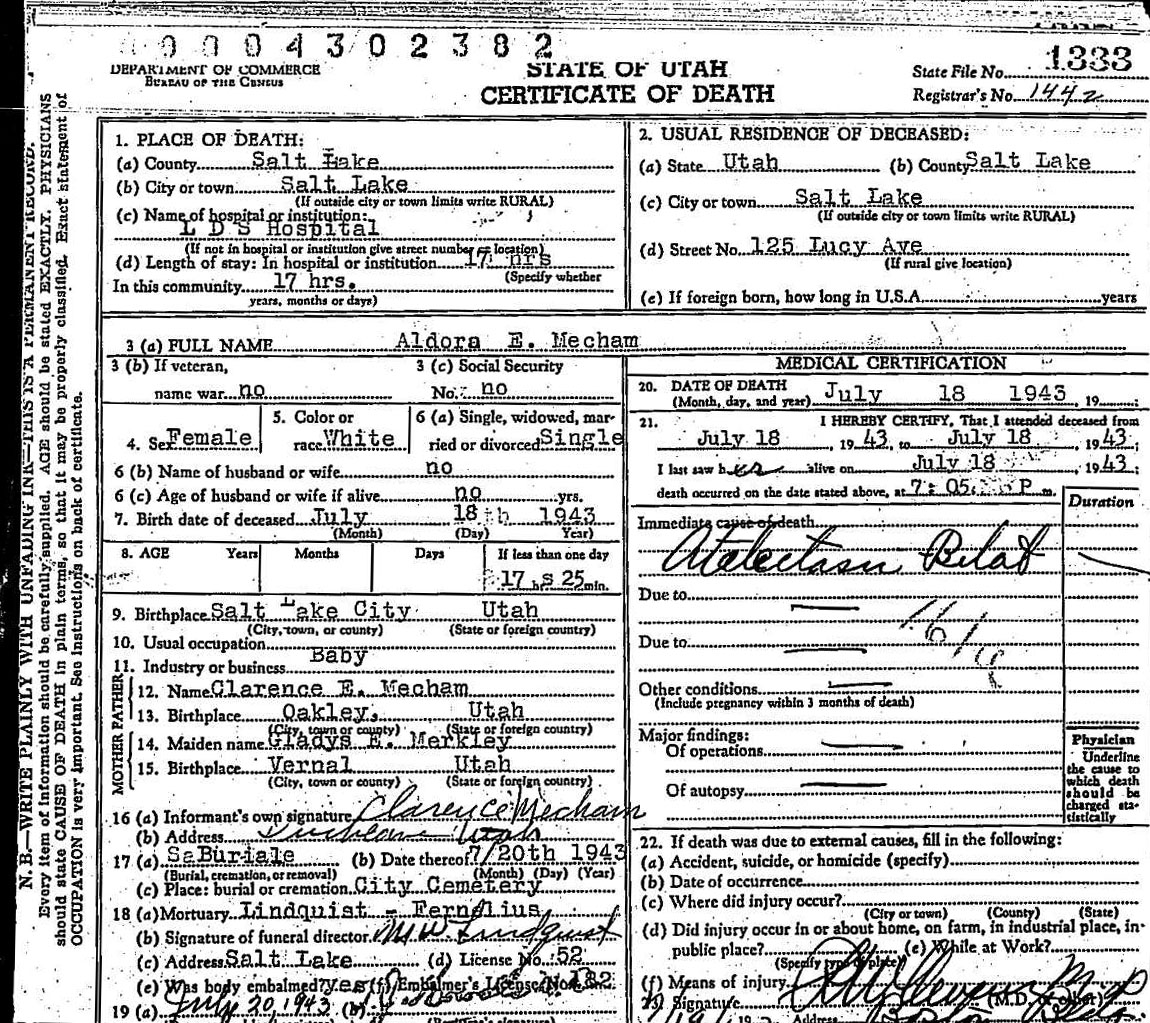 0 0 0 4 3 0 2 3 8 2
DEPARTMENT OF COMMERCE
BUREAU OF THE CENSUS
STATE OF UTAH
CERTIFICATE OF DEATH
State File No. 1333
Registrar's No. 1442
N. B.—WRITE PLAINLY WITH UNFADING INK—THIS IS A PERMANENT RECORD.
Every item of information should be carefully supplied. AGE should be stated EXACTLY. PHYSICIANS
should state CAUSE OF DEATH in plain terms, so that it may be properly classified. Exact statement of
OCCUPATION is very important. See instructions on back of certificate.
1. PLACE OF DEATH:
(a) County Salt Lake
(b) City or town Salt Lake
(If outside city or town limits write RURAL)
(c) Name of hospital or institution:
L D S Hospital
(If not in hospital or institution give street number or location)
(d) Length of stay: In hospital or institution 17 hrs
(Specify whether
In this community 17 hrs.
years, months or days)
2. USUAL RESIDENCE OF DECEASED:
(a) State Utah (b) County Salt Lake
(c) City or town Salt Lake
(If outside city or town limits write RURAL)
(d) Street No. 125 Lucy Ave
(If rural give location)
(e) If foreign born, how long in U.S.A. years
3 (a) FULL NAME Aldora E. Mecham
3 (b) If veteran,
name war no
3 (c) Social Security
No. no
4. Sex Female
5. Color or
race White
6 (a) Single, widowed, mar-
ried or divorced Single
6 (b) Name of husband or wife no
6 (c) Age of husband or wife if alive no yrs.
7. Birth date of deceased July 18th 1943
(Month) (Day) (Year)
8. AGE Years Months Days If less than one day
17 hrs 25 min.
9. Birthplace Salt Lake City Utah
(City, town, or county) (State or foreign country)
10. Usual occupation
Baby
11. Industry or business
FATHER
12. Name Clarence E. Mecham
13. Birthplace Oakley, Utah
(City, town or county) (State or foreign country)
MOTHER
14. Maiden name Gladys E. Merkley
15. Birthplace Vernal Utah
(City, town or county) (State or foreign country)
16 (a) Informant's own signature Clarence Mecham
(b) Address Duchesne Utah
17 (a) SaBuriale (b) Date thereof 7/20th 1943
(Burial, cremation, or removal) (Month) (Day) (Year)
(c) Place: burial or cremation City Cemetery
18 (a) Mortuary Lindquist - Fernelius
(b) Signature of funeral director M W Lindquist
(c) Address Salt Lake (d) License No. 52
(e) Was body embalmed? yes (f) Embalmer's License No. 182
19 (a) July 20, 1943 (b)
(Registrar's signature)
MEDICAL CERTIFICATION
20. DATE OF DEATH
(Month, day, and year) July 18 1943, 19 ;
21. I HEREBY CERTIFY, That I attended deceased from
July 18, 1943, to July 18, 1943;
I last saw her alive on July 18, 1943
death occurred on the date stated above, at 7:05 P m.
Duration
Immediate cause of death
Atelectasis Bilat
Due to
Due to
161a
Other conditions
(Include pregnancy within 3 months of death)
Major findings:
Of operations
Of autopsy
Physician
Underline
the cause to
which death
should be
charged sta-
tistically
22. If death was due to external causes, fill in the following:
(a) Accident, suicide, or homicide (specify)
(b) Date of occurrence
(c) Where did injury occur?
(City or town) (County) (State)
(d) Did injury occur in or about home, on farm, in industrial place, in
public place? (e) While at Work?
(Specify type of place)
(f) Means of injury
23. Signature (M.D. or other)
Address Boston Bldg.